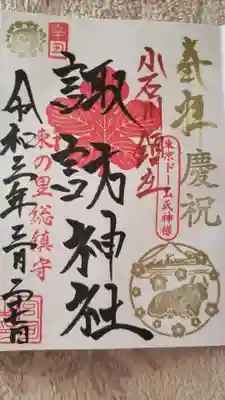 奉拝 慶祝
小石川鎮守
東京ドーム氏神様
諏訪神社
東の里総鎮守
令和三年三月二十日
辛丑